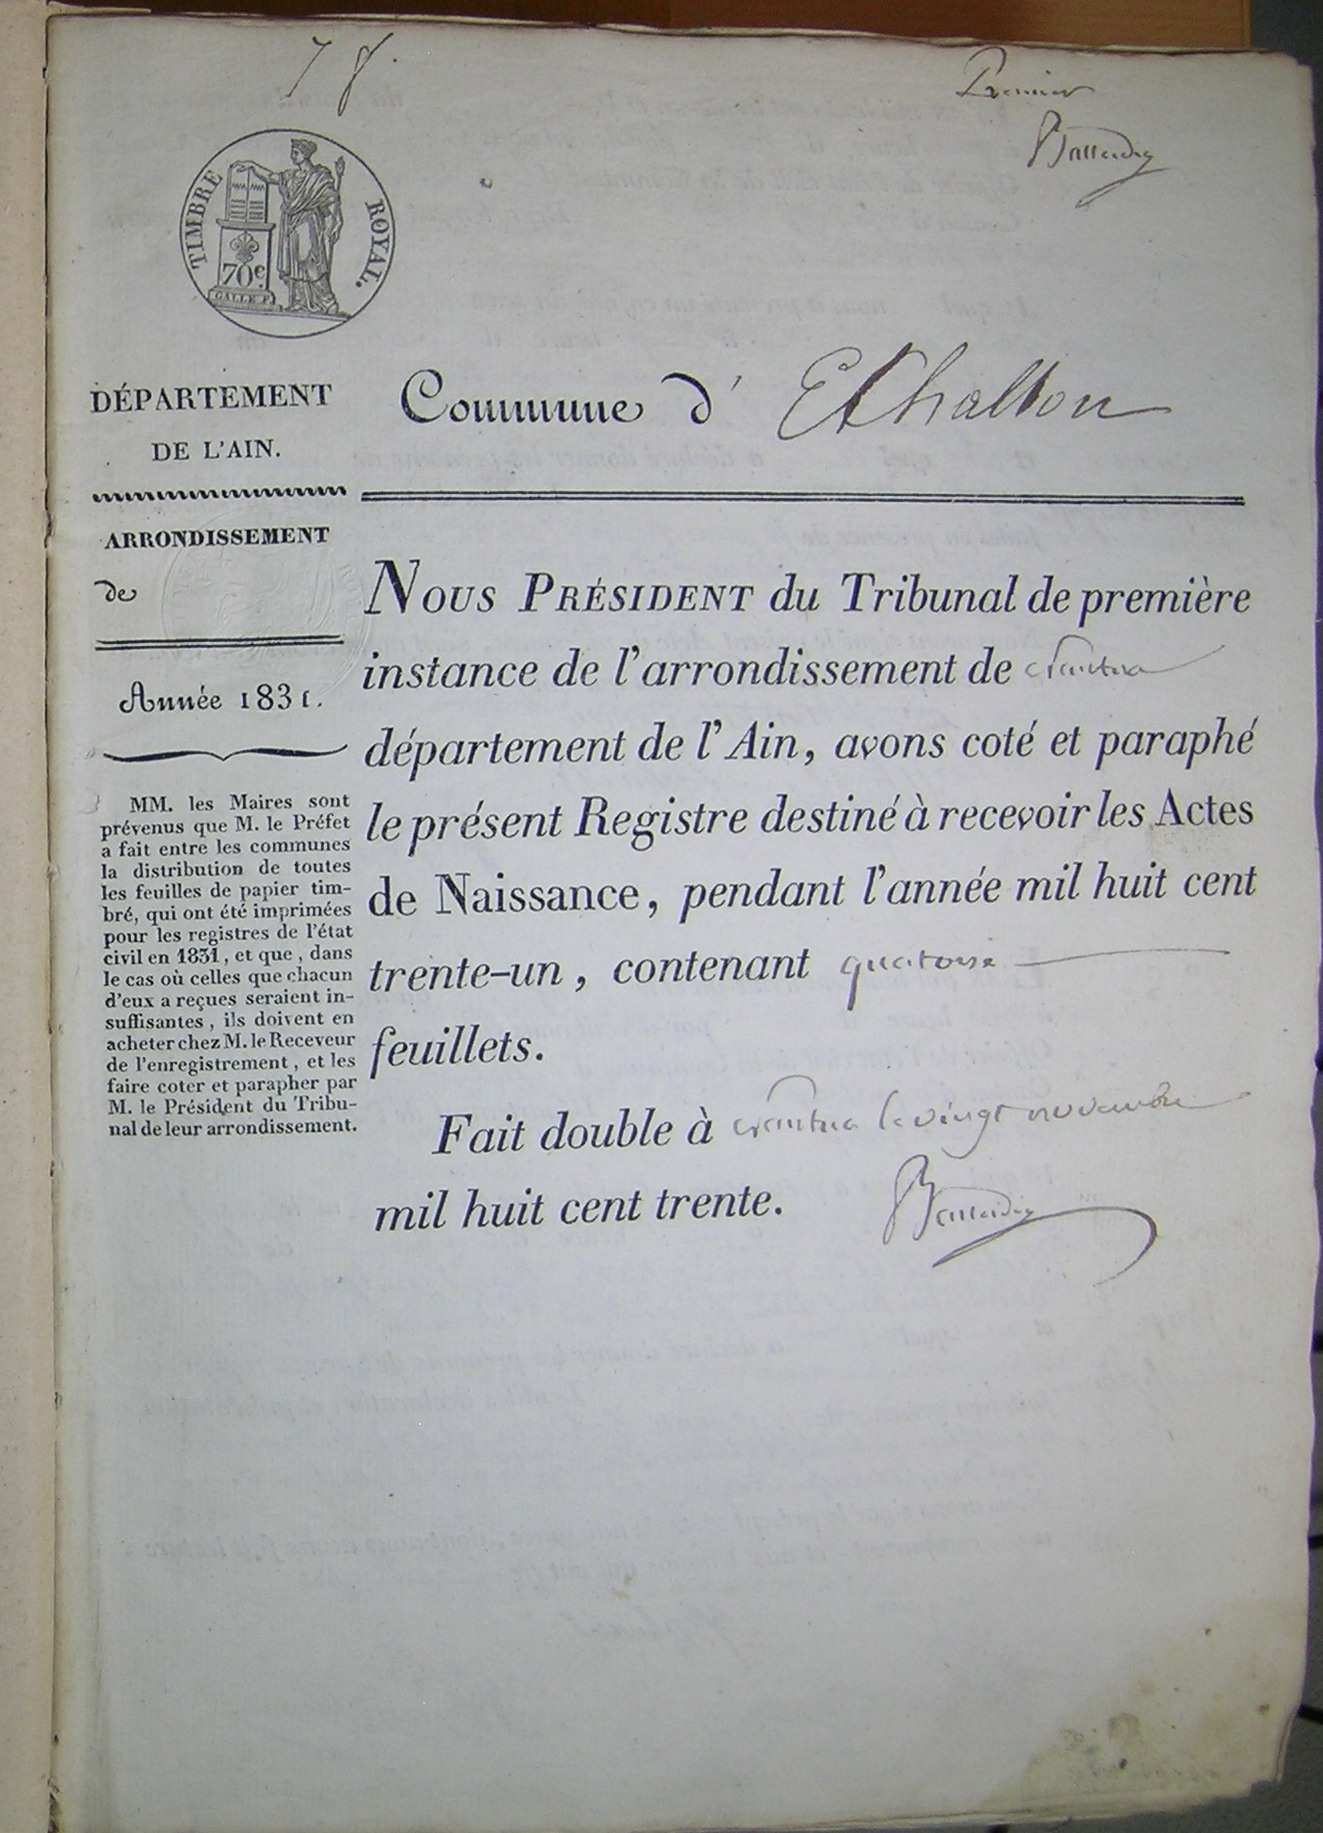 78.
Premier
TIMBRE ROYAL.
70c
GALLE F.
DÉPARTEMENT
DE L'AIN.
Commune d' Echallon
ARRONDISSEMENT
de
Année 1831.
MM. les Maires sont
prévenus que M. le Préfet
a fait entre les communes
la distribution de toutes
les feuilles de papier tim-
bré, qui ont été imprimées
pour les registres de l'état
civil en 1831, et que, dans
le cas où celles que chacun
d'eux a reçues seraient in-
suffisantes, ils doivent en
acheter chez M. le Receveur
de l'enregistrement, et les
faire coter et parapher par
M. le Président du Tribu-
nal de leur arrondissement.
NOUS PRÉSIDENT du Tribunal de première
instance de l'arrondissement de Nantua
département de l'Ain, avons coté et paraphé
le présent Registre destiné à recevoir les Actes
de Naissance, pendant l'année mil huit cent
trente-un, contenant quatorze
feuillets.
Fait double à Nantua le vingt novembre
mil huit cent trente.